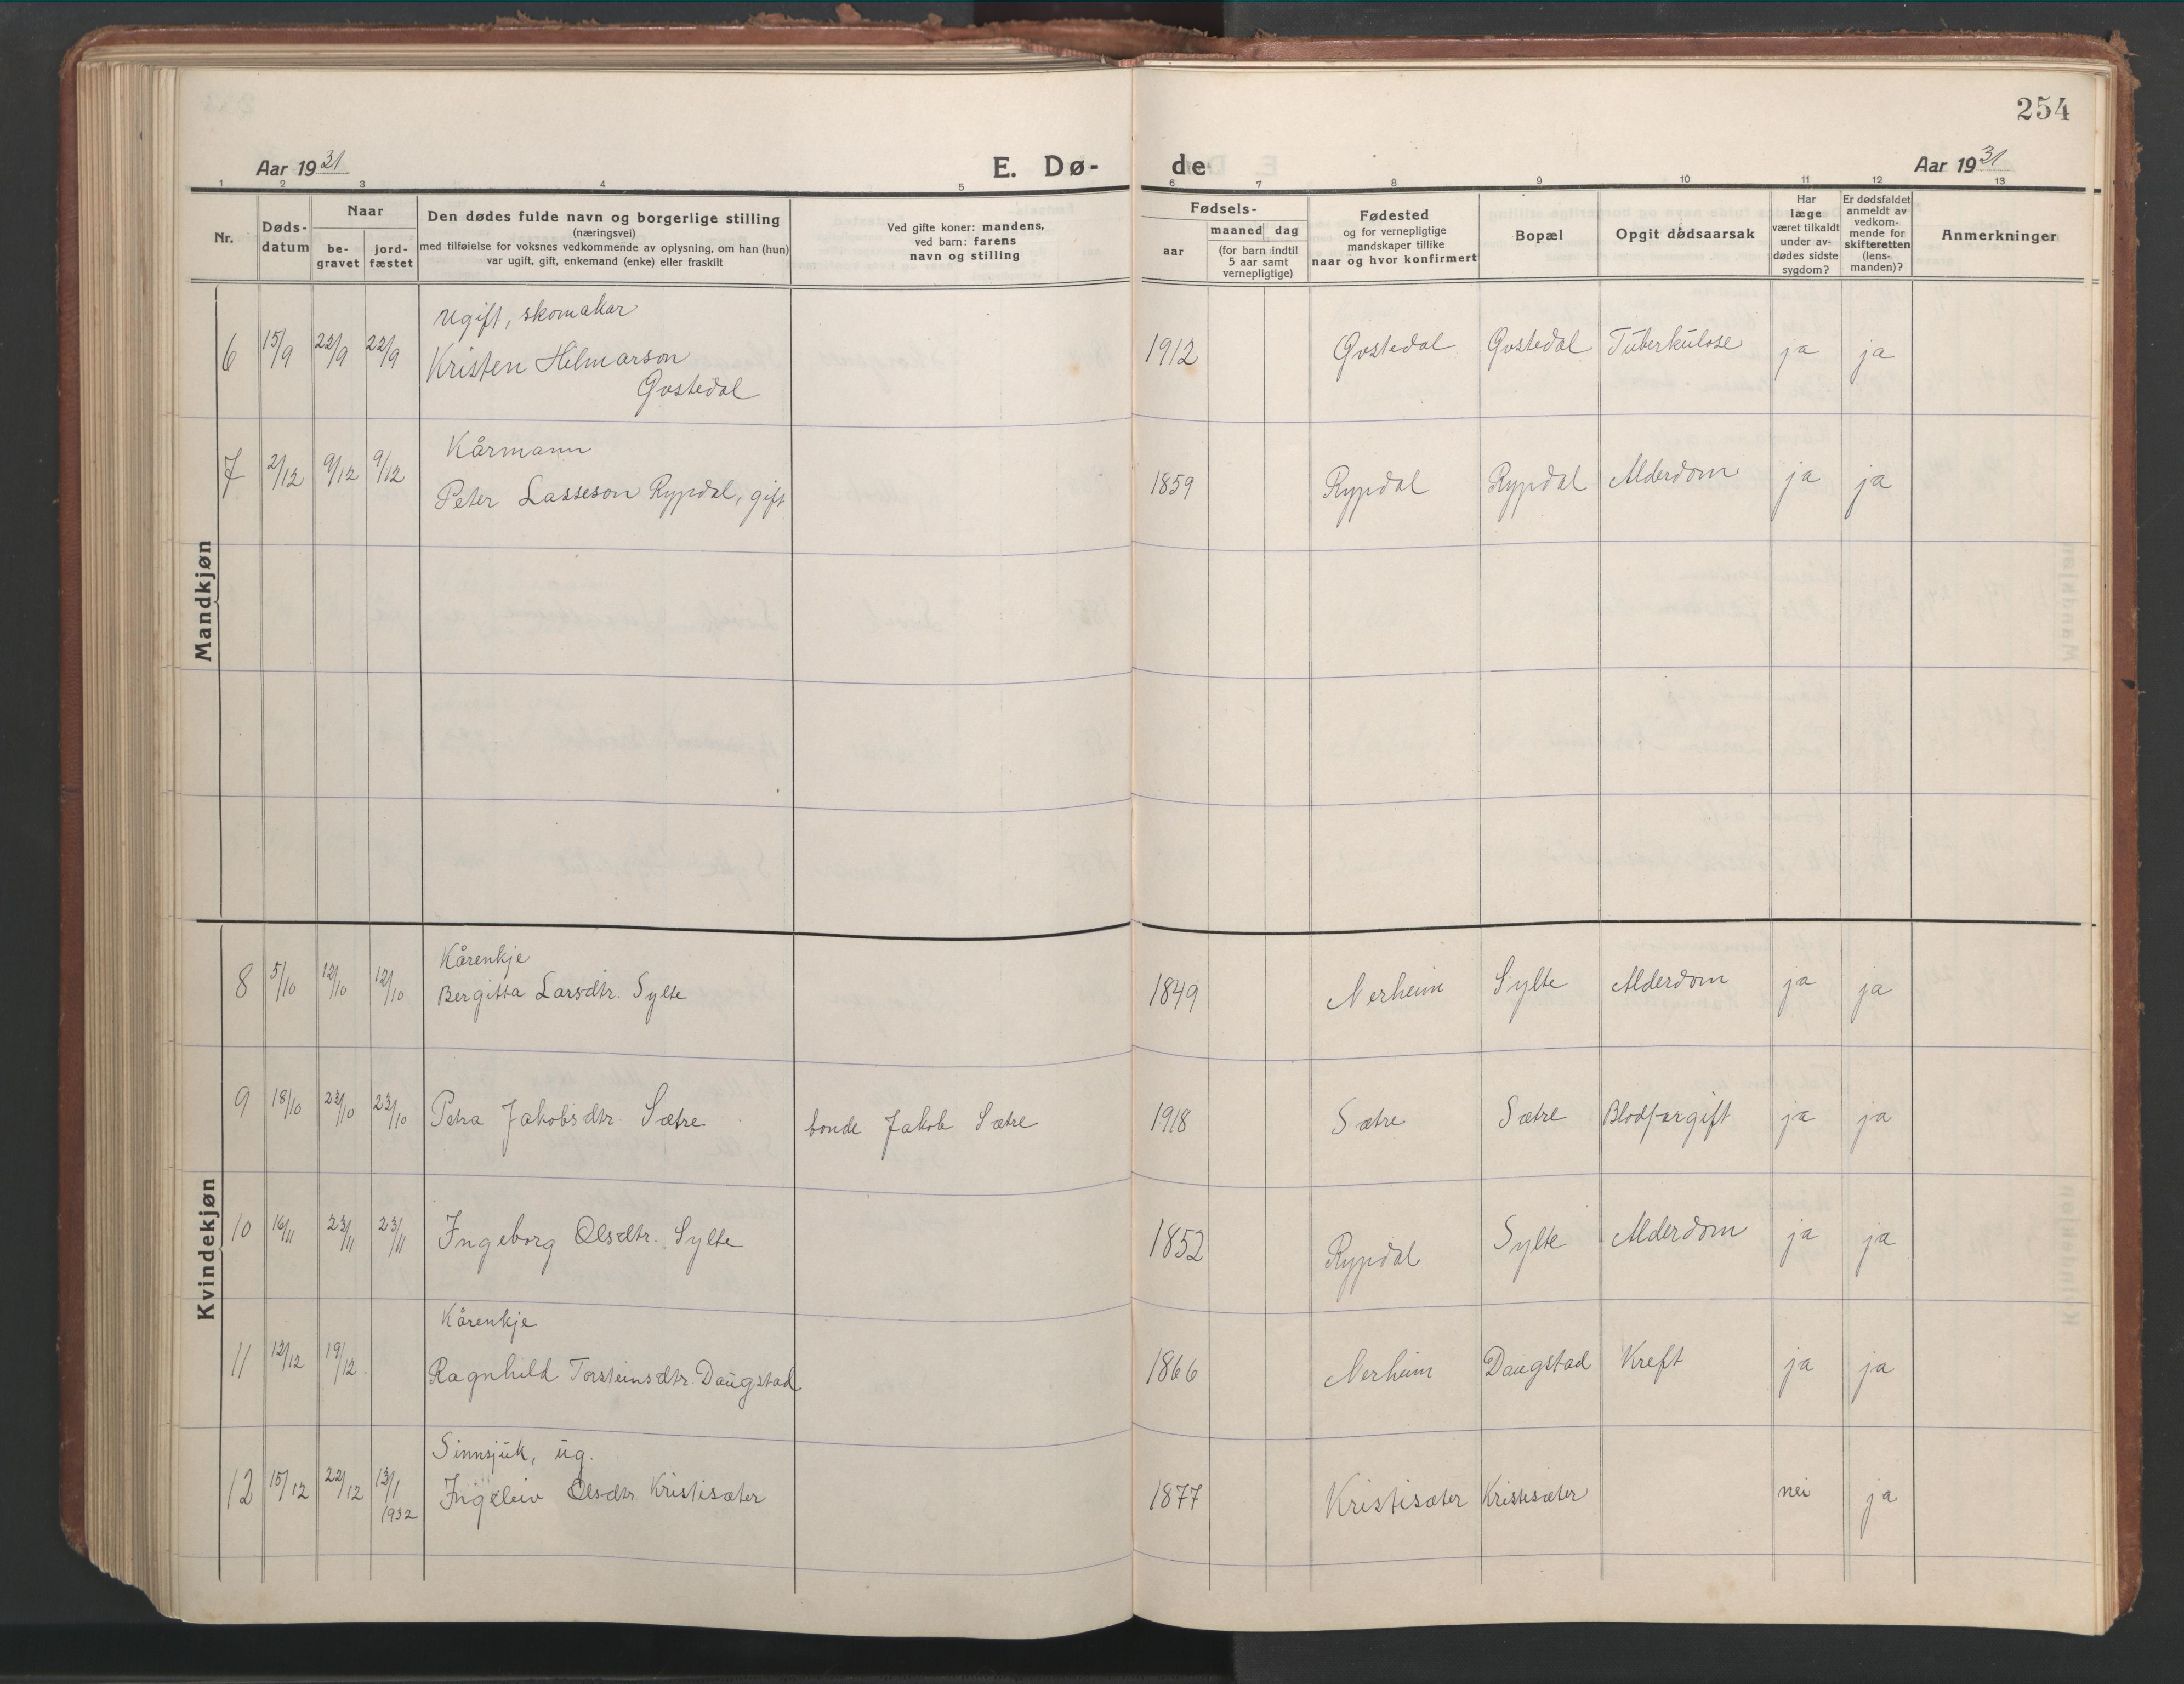 254
Aar 1931 E. Dø- de Aar 1931
1 2 3 4 5 6 7 8 9 10 11 12 13
Nr.
Døds-
datum
Naar
be-
gravet
jord-
fæstet
Den dødes fulde navn og borgerlige stilling
(næringsvei)
med tilføielse for voksnes vedkommende av oplysning, om han (hun)
var ugift, gift, enkemand (enke) eller fraskilt
Ved gifte koner: mandens,
ved barn: farens
navn og stilling
Fødsels-
aar
maaned dag
(for barn indtil
5 aar samt
vernepligtige)
Fødested
og for vernepligtige
mandskaper tillike
naar og hvor konfirmert
Bopæl
Opgit dødsaarsak
Har
læge
været tilkaldt
under av-
dødes sidste
sygdom?
Er dødsfaldet
anmeldt av
vedkom-
mende for
skifteretten
(lens-
manden)?
Anmerkninger
Mandkjøn
ugift, skomakar
6 15/9 22/9 22/9 Kristen Hilmarson 1912 Gvstedal Gvstedal Tuberkulose ja ja
Gvstedal
Kårmann
7 2/12 9/12 9/12 Peter Lasseson Rypdal, gift 1859 Rypdal Rypdal Alderdom ja ja
Kvindekjøn
Kårenkje
8 5/10 12/10 12/10 Bergitta Larsdtr. Sylte 1849 Nerheim Sylte Alderdom ja ja
9 18/10 23/10 23/10 Petra Jakobsdtr. Sætre bonde Jakob Sætre 1918 Sætre Sætre Blodforgift ja ja
10 16/11 23/11 23/11 Ingeborg Olsdtr. Sylte 1852 Rypdal Sylte Alderdom ja ja
Kårenkje
11 12/12 19/12. Ragnhild Torsteinsdtr. Daugstad 1866 Nerheim Daugstad Kreft ja ja
Sinnsjuk, ug.
12 15/12 22/12 13/1 1932 Ingeleiv Olsdtr. Kristisæter 1877 Kristisæter Kristisæter nei ja